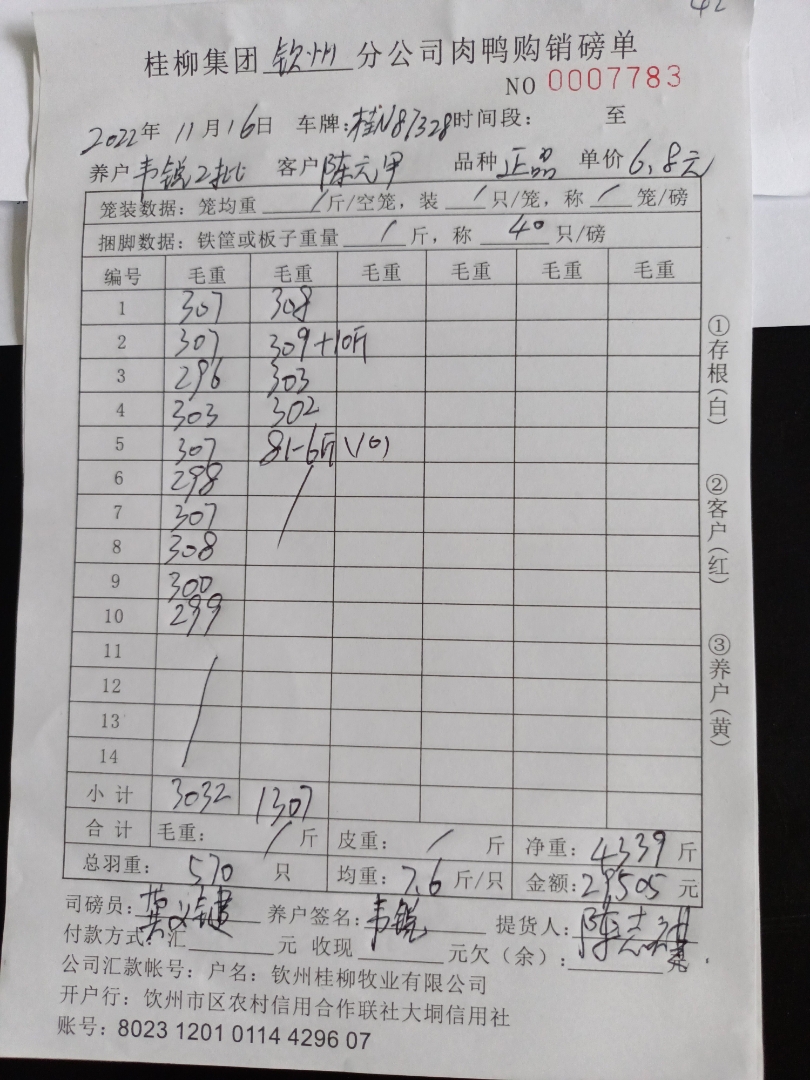 42
桂柳集团 钦州 分公司肉鸭购销磅单
NO 0007783
2022年 11月16日 车牌:桂N87328时间段: 至
养户韦锐2批 客户陈元甲 品种正品 单价6.8元
笼装数据: 笼均重 / 斤/空笼, 装 / 只/笼, 称 / 笼/磅
捆脚数据: 铁筐或板子重量 / 斤, 称 40 只/磅
编号 毛重 毛重 毛重 毛重 毛重 毛重
1 307 308
2 307 309+10斤
3 296 303
4 303 302
5 307 81-6斤 (10)
6 298 /
7 307
8 308
9 300
10 299
11
12 /
13
14
小计 3032 1307
合计 毛重: / 斤 皮重: / 斤 净重: 4339 斤
总羽重: 570 只 均重: 7.6 斤/只 金额: 29505 元
司磅员: 养户签名: 韦锐 提货人: 陈志
付款方式: 汇 元 收现 元欠(余):
公司汇款帐号: 户名: 钦州桂柳牧业有限公司
开户行: 钦州市区农村信用合作联社大垌信用社
账号: 8023 1201 0114 4296 07
①存根(白)
②客户(红)
③养户(黄)